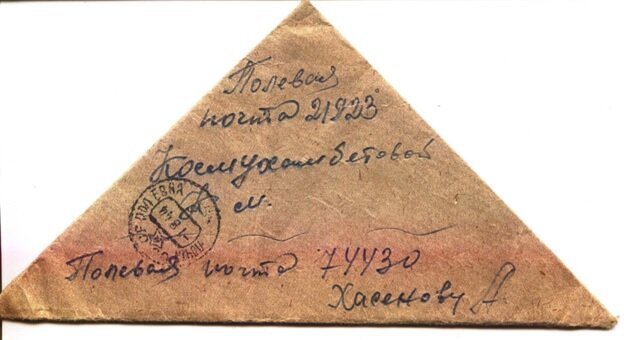 Полевая
почта 21823
Космухамбетовой
м.
Полевая почта 74430
Хасенову А.